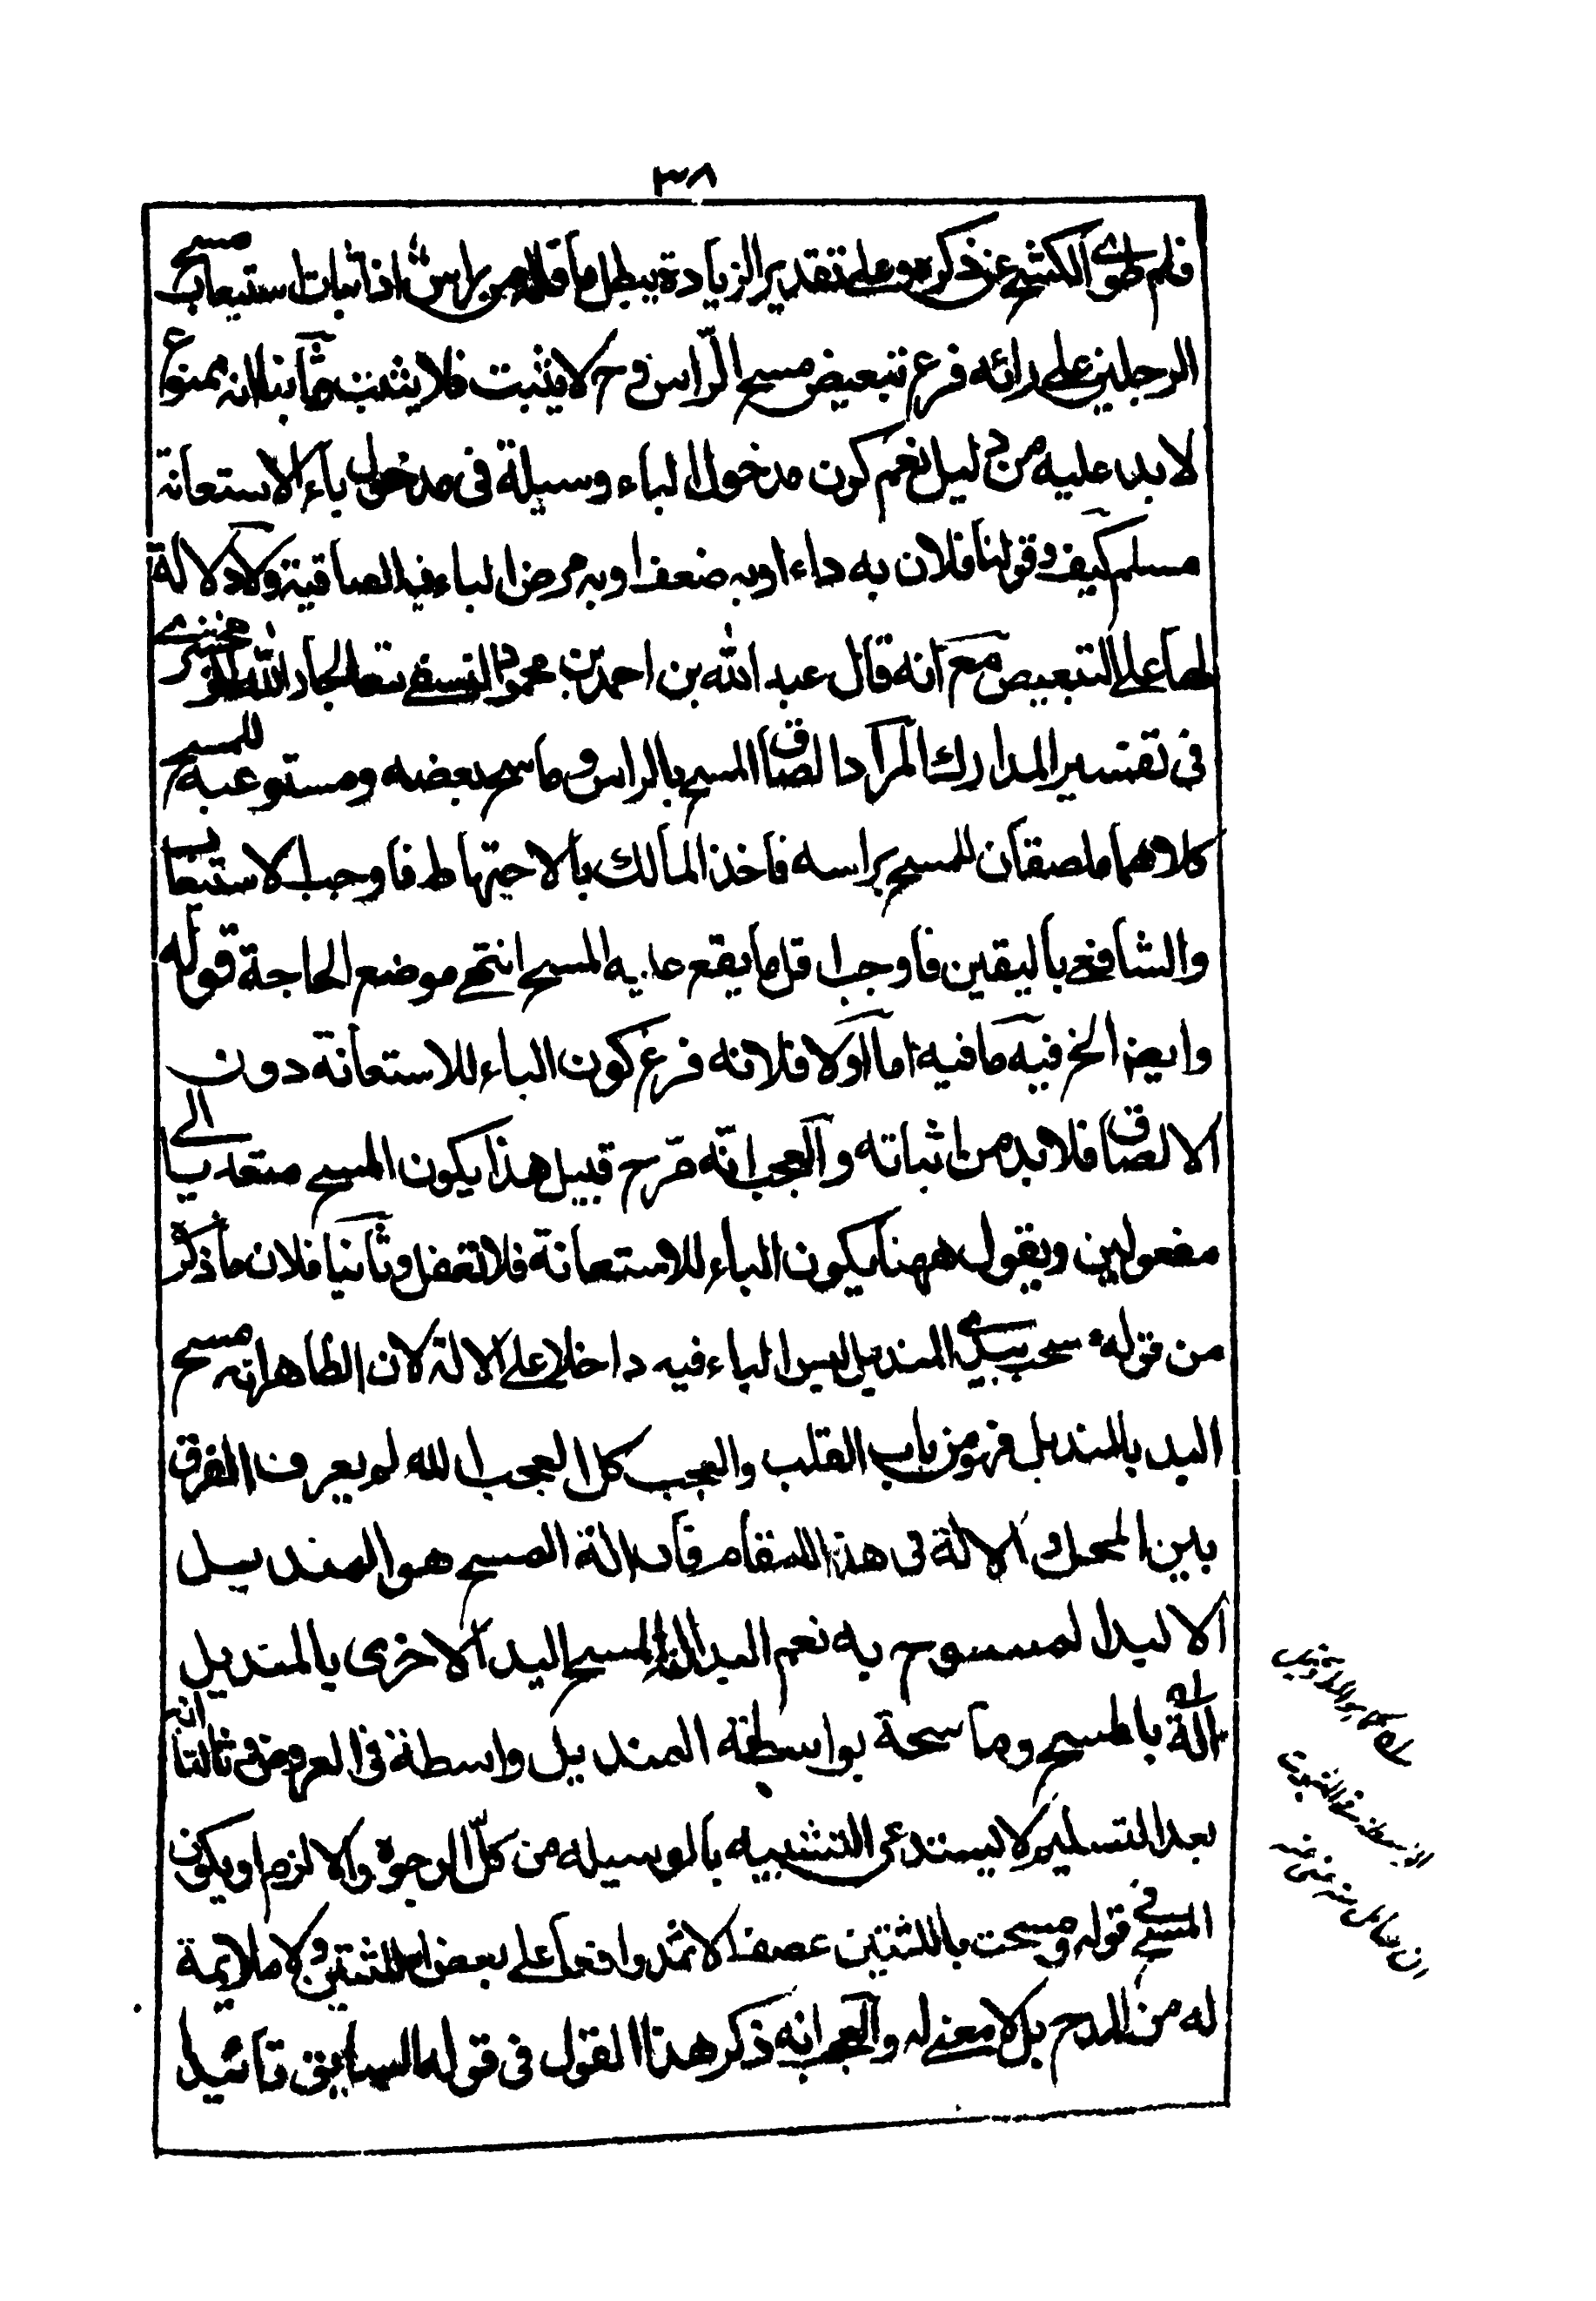 ٣٨
فلم طوى الكشح عن ذكره وعلى تقدير الزيادة يبطل ما قاله اذ اثبات استيعاب مسح
الرجلين على رائه فرع تبعيض مسح الراس وح لا يثبت فلا يثبت انه ممنوع
لا بد عليه من دليل نعم كون مدخول الباء وسيلة فى مدخول باء الاستعانة
مسلم كيف وقولنا فلان به داء او به ضعف او به مرض الباء فيه الصاقية ولا دلالة
لها على التبعيض مع انه قال عبد الله بن احمد بن محمود النسفى تبعا لجار الله الزمخشرى
فى تفسير المدارك المراد الصاق المسح بالراس وماسح بعضه ومستوعبه للمسح
كلاهما ملصقان للمسح براسه فاخذ المالك بالاحتياط فاوجب الاستيعاب
والشافعى باليقين فاوجب اقل ما يقع عليه المسح انتهى موضع الحاجة قوله
وايضا الخ فيه ما فيه اما اولا فلانه فرع كون الباء للاستعانة دون
الالصاق فلا بد من اثباته والعجب انه صرح قبيل هذا يكون المسح متعديا الى
مفعولين ويقول ههنا يكون الباء للاستعانة فلا تغفل وثانيا فلان ما ذكر
من قوله سحب بيدى المنديل ليس الباء فيه داخلا على الالة لان الظاهر انه مسح
اليد بالمنديل فهو من باب القلب والعجب كل العجب لم يعرف الفرق
بين المحل والالة فى هذا المقام فان الة المسح هو المنديل
لا اليد الممسوح به نعم اليد المسح اليد الاخرى بالمنديل
الة بالمسح وماسحة بواسطة المنديل واسطة فى العروض وثالثا انه
بعد التسليم لا يستدعى التشبيه بالوسيله من كل الوجوه والا لزم ان يكون
المسح فى قوله ومسحت باللثتين عصف الاثمد واقعا على بعض اللثتين ولا ملايمة
له من المدح بل لا معنى له والعجب انه ذكر هذا القول فى قوله السابق تائيدا